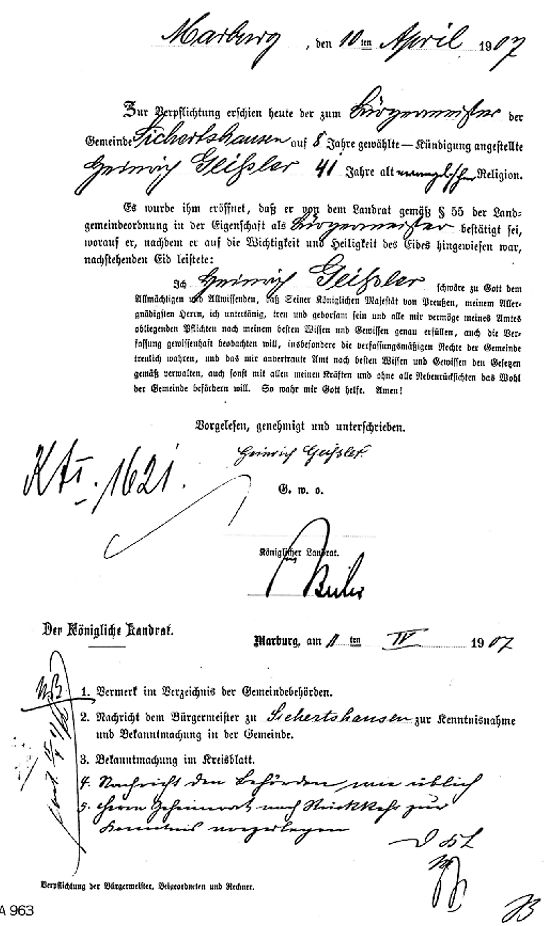 Marburg, den 10ten April 1907
Zur Verpflichtung erschien heute der zum Bürgermeister der
Gemeinde Sichertshausen auf 8 Jahre gewählte — Kündigung angestellte
Heinrich Geißler 41 Jahre alt evangelischer Religion.
Es wurde ihm eröffnet, daß er von dem Landrat gemäß § 55 der Land-
gemeindeordnung in der Eigenschaft als Bürgermeister bestätigt sei,
worauf er, nachdem er auf die Wichtigkeit und Heiligkeit des Eides hingewiesen war,
nachstehenden Eid leistete:
Ich Heinrich Geißler schwöre zu Gott dem
Allmächtigen und Allwissenden, daß Seiner Königlichen Majestät von Preußen, meinem Aller-
gnädigsten Herrn, ich untertänig, treu und gehorsam sein und alle mir vermöge meines Amtes
obliegenden Pflichten nach meinem besten Wissen und Gewissen genau erfüllen, auch die Ver-
fassung gewissenhaft beobachten will, insbesondere die verfassungsmäßigen Rechte der Gemeinde
treulich wahren, und das mir anvertraute Amt nach besten Wissen und Gewissen den Gesetzen
gemäß verwalten, auch sonst mit allen meinen Kräften und ohne alle Nebenrücksichten das Wohl
der Gemeinde befördern will. So wahr mir Gott helfe. Amen!
Vorgelesen, genehmigt und unterschrieben.
Heinrich Geißler.
1621.
G. w. o.
Königlicher Landrat.
Der Königliche Landrat.
Marburg, am 11ten IV 1907
1. Vermerk im Verzeichnis der Gemeindebehörden.
2. Nachricht dem Bürgermeister zu Sichertshausen zur Kenntnisnahme
und Bekanntmachung in der Gemeinde.
3. Bekanntmachung im Kreisblatt.
4. Nachricht den Behörden wie üblich
5. Herrn Geheimrat nach Rückkehr zur
Kenntnis vorzulegen
Verpflichtung der Bürgermeister, Beigeordneten und Rechner.
A 963